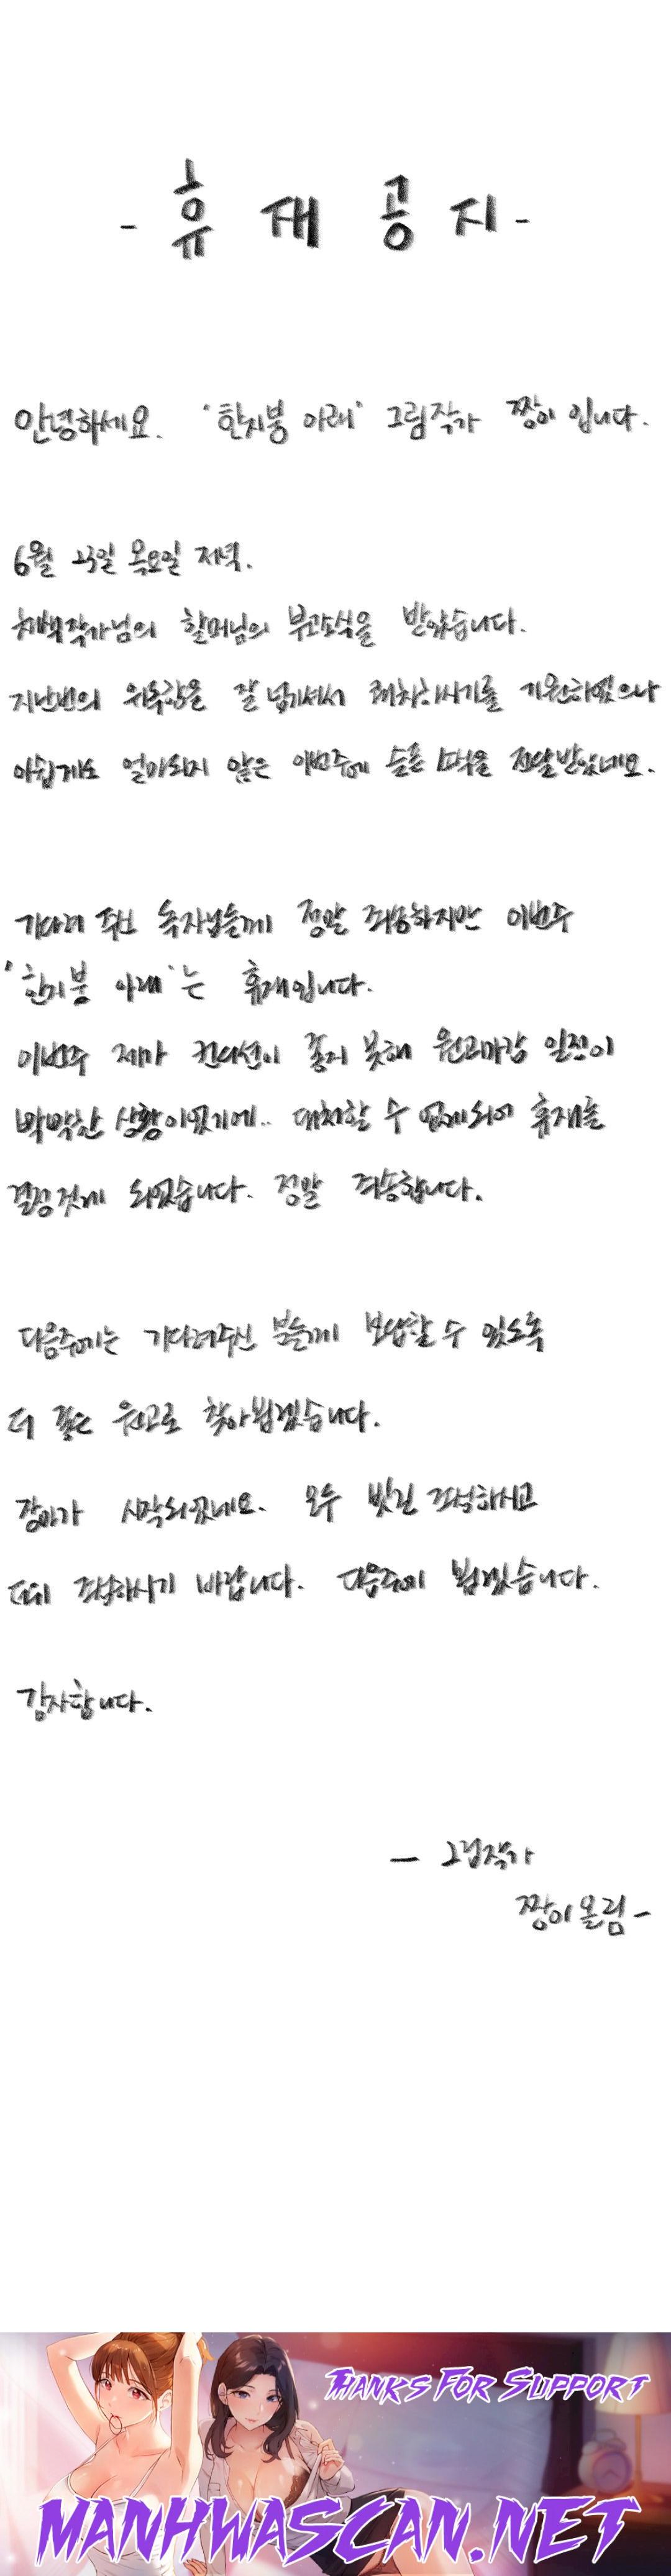 - 휴 재 공 지 -
안녕하세요. '한지붕 아래' 그림작가 짱이 입니다.
6월 23일 목요일 저녁.
채색작가님의 할머님의 부고소식을 받았습니다.
지난번의 위독함을 잘 넘기셔서 쾌차하시기를 기원하였으나
아쉽게도 얼마되지 않은 이번주에 슬픈 소식을 전달받았네요.
기다려 주신 독자님들께 정말 죄송하지만 이번주
'한지붕 아래'는 휴재입니다.
이번주 제가 컨디션이 좋지 못해 원고마감 일정이
빡빡한 상황이었기에.. 대처할 수 없게되어 휴재를
결정짓게 되었습니다. 정말 죄송합니다.
다음주에는 기다려주신 분들께 보답할 수 있도록
더 좋은 원고로 찾아뵙겠습니다.
장마가 시작되었네요. 모두 빗길 조심하시고
조심하시기 바랍니다. 다음주에 뵙겠습니다.
감사합니다.
- 그림작가
짱이 올림 -
THANKS FOR SUPPORT
MANHWASCAN.NET